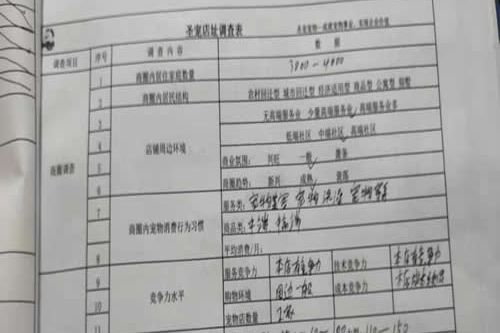 圣宠店址调查表
调查项目 序号 调查内容 数据
1 商圈内居住家庭数量 3000-4000
2 商圈内居民结构 农村回迁型 城市回迁型 经济适用型 商品型 公寓型 别墅
3 无高端服务业 少量高端服务业 高端服务业多
4 店铺周边环境 低端社区 中端社区 高端社区
5 商业氛围: 兴旺 一般 萧条
6 商圈趋势: 新兴 成熟 衰落
商圈调查
7 商圈内宠物消费行为习惯 服务类: 宠物美容 宠物洗澡 宠物寄养
商品类: 主粮
8 平均消费/月:
9 竞争力水平 服务竞争力 本店有竞争力 技术竞争力 本店有竞争力
10 购物环境 周边一般 成本竞争力
宠物店数量 2家
11